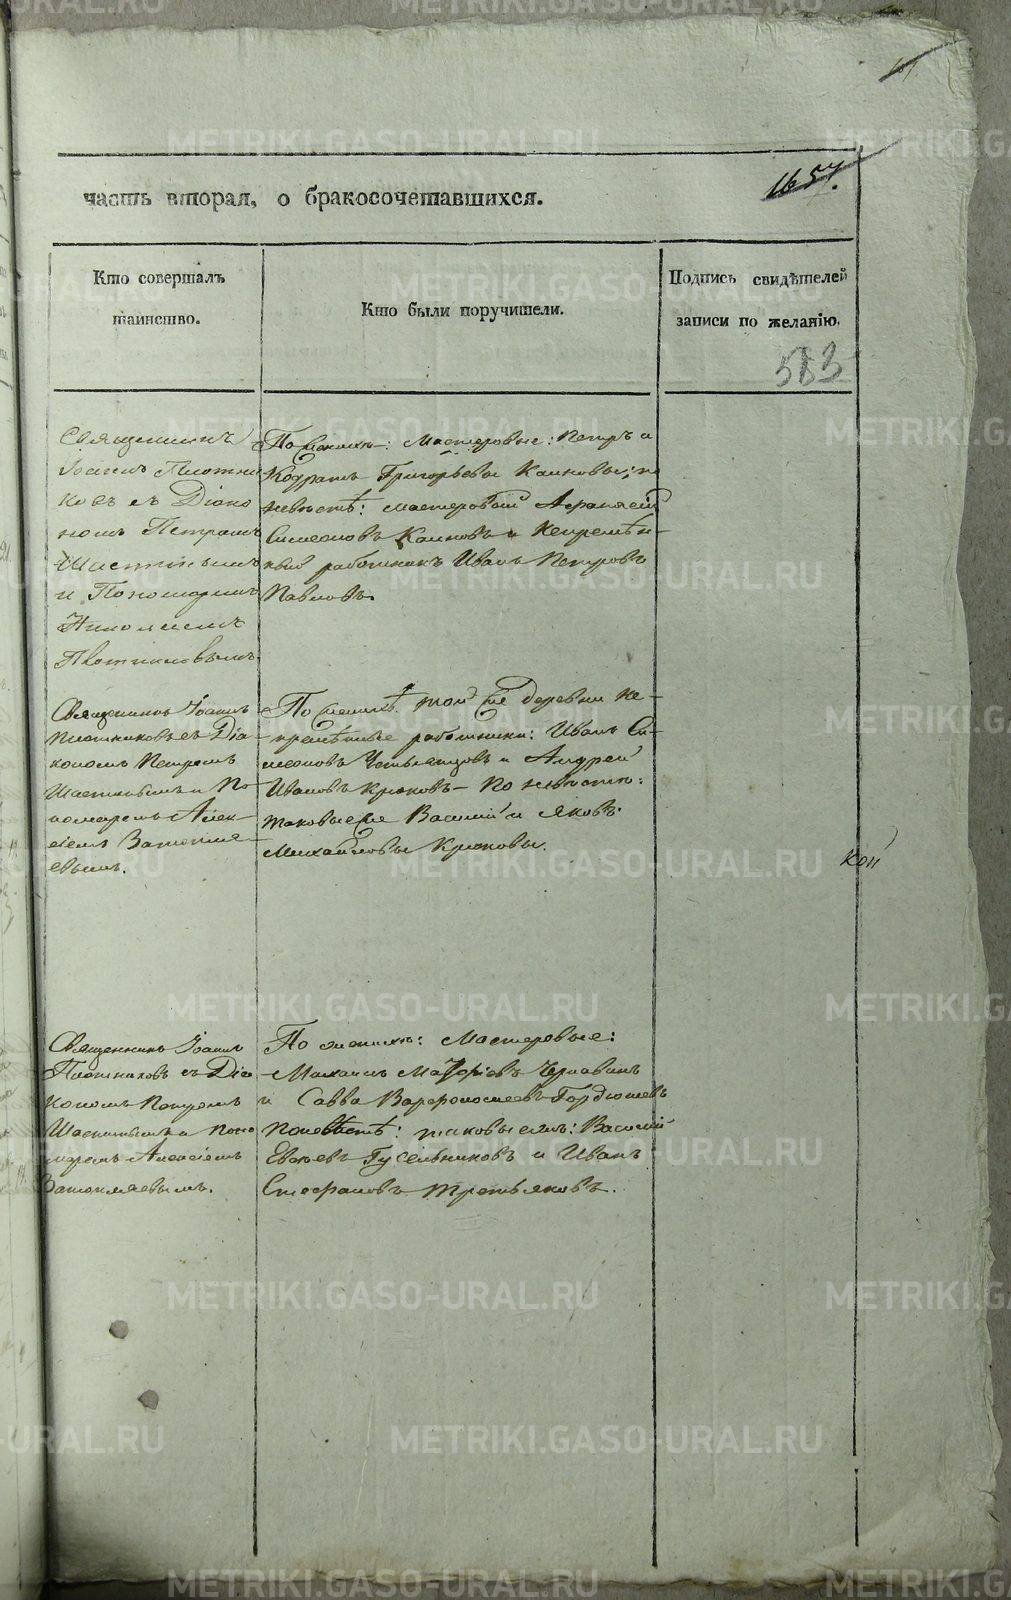 1657.
часть вторая, о бракосочетавшихся.
Кто совершалъ
таинство.
Кто были поручители.
Подпись свидѣтелей
записи по желанію.
583
Священникъ
Іоаннъ Плотни
ковъ съ Діако
номъ Петромъ
Шастинымъ
и Пономаремъ
Николаемъ
Плотниковымъ.
По женихѣ: Мастеровые: Петръ и
Кодратъ Григорьевы Каиновы; по
невѣстѣ: мастеровой Афанасій
Симеоновъ Каиновъ и Непремѣн-
ный работникъ Иванъ Петровъ
Павловъ.
Священникъ Іоаннъ
Плотниковъ съ Діа-
кономъ Петромъ
Шастинымъ и По-
номаремъ Алек-
сіемъ
евымъ.
По женихѣ: той же деревни не-
премѣнные работники: Иванъ Си-
меоновъ и Андрей
Ивановъ Крюковъ – По невѣстѣ:
таковые же Василій и Яковъ
Михайловы Крюковы.
кой
Священникъ Іоаннъ
Плотниковъ съ Діа
кономъ Петромъ
Шастинымъ и Поно
маремъ Алексіемъ
По женихѣ: Мастеровые:
и Савва Варфоломеевъ Гордѣевъ
По невѣстѣ: таковые же: Василій
Евсѣевъ Гусельниковъ и Иванъ
Стефановъ Третьяковъ.
METRIKI.GASO-URAL.RU